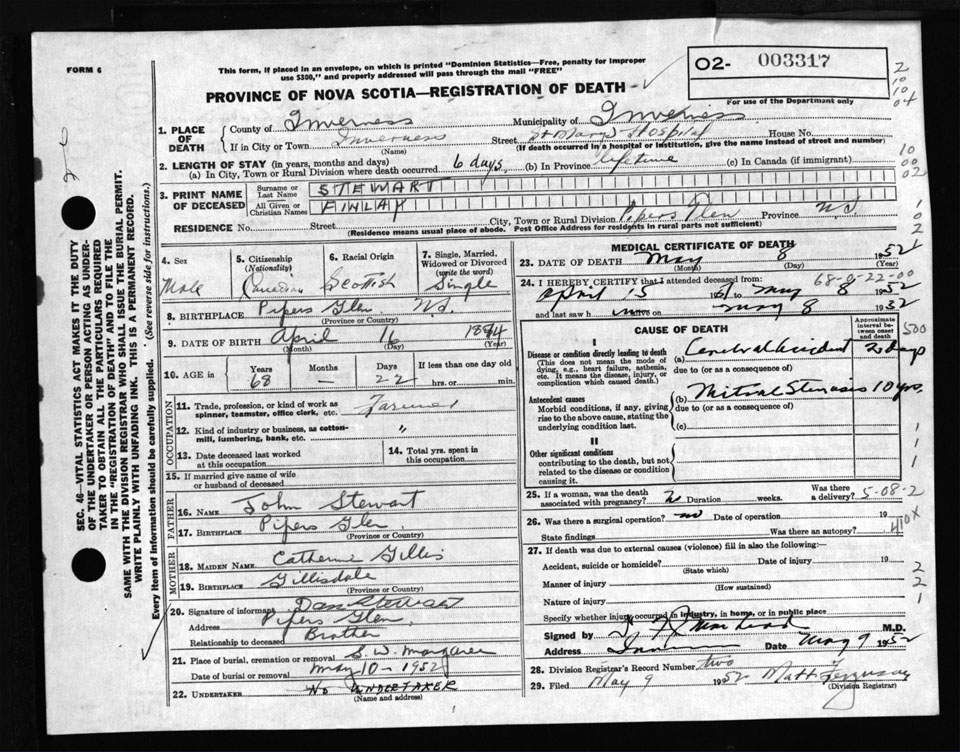 FORM 6
This form, if placed in an envelope, on which is printed "Dominion Statistics—Free, penalty for improper
use $300," and properly addressed will pass through the mail "FREE"
02- 003317
For use of the Department only
PROVINCE OF NOVA SCOTIA—REGISTRATION OF DEATH
2
10
10
04
10
00
02
1. PLACE OF DEATH
County of Inverness Municipality of Inverness
If in City or Town Inverness Street St Marys Hospital House No.
(Name) (If death occurred in a hospital or institution, give the name instead of street and number)
2. LENGTH OF STAY (in years, months and days)
(a) In City, Town or Rural Division where death occurred 6 days (b) In Province lifetime (c) In Canada (if immigrant)
3. PRINT NAME OF DECEASED
Surname or Last Name STEWART
All Given or Christian Names FINLAY
RESIDENCE No. Street City, Town or Rural Division Pipers Glen Province N.S.
(Residence means usual place of abode. Post Office Address for residents in rural parts not sufficient)
4. Sex Male
5. Citizenship (Nationality) Canadian
6. Racial Origin Scottish
7. Single, Married, Widowed or Divorced (write the word) Single
8. BIRTHPLACE Pipers Glen N.S.
(Province or Country)
9. DATE OF BIRTH April 16
(Month) (Day) (Year)
10. AGE in Years 68 Months — Days 22 If less than one day hrs. or min.
OCCUPATION
11. Trade, profession, or kind of work as spinner, teamster, office clerk, etc. Farmer
12. Kind of industry or business, as cotton-mill, lumbering, bank, etc. "
13. Date deceased last worked at this occupation
14. Total yrs. spent in this occupation
15. If married give name of wife or husband of deceased
FATHER
16. NAME John Stewart
17. BIRTHPLACE Pipers Glen
(Province or Country)
MOTHER
18. MAIDEN NAME Catherine Gillis
19. BIRTHPLACE Gillisdale
(Province or Country)
20. Signature of informant Dan Stewart
Address Pipers Glen
Relationship to deceased Brother
21. Place of burial, cremation or removal S. W. Margaree
Date of burial or removal May 10 - 1952
22. UNDERTAKER No UNDERTAKER
(Name and address)
MEDICAL CERTIFICATE OF DEATH
23. DATE OF DEATH May 8 1952
(Month) (Day) (Year)
68-0-22-00
24. I HEREBY CERTIFY that I attended deceased from:
April 15 to May 8 1952
and last saw h alive on May 8 1952
CAUSE OF DEATH
Approximate interval between onset and death
I
Disease or condition directly leading to death
(This does not mean the mode of dying, e.g., heart failure, asthenia, etc. It means the disease, injury, or complication which caused death.)
(a) Cerebral accident days
due to (or as a consequence of)
Antecedent causes
Morbid conditions, if any, giving rise to the above cause, stating the underlying condition last.
(b) Mitral Stenosis 10 yrs.
due to (or as a consequence of)
(c)
II
Other significant conditions
contributing to the death, but not related to the disease or condition causing it.
25. If a woman, was the death associated with pregnancy? Duration weeks. Was there a delivery?
5-08-2
26. Was there a surgical operation? no Date of operation 19
State findings Was there an autopsy?
27. If death was due to external causes (violence) fill in also the following:—
Accident, suicide or homicide? Date of injury 19
(State which)
Manner of injury
(How sustained)
Nature of injury
Specify whether injury occurred in industry, in home, or in public place
Signed by M.D.
Address Date May 9 1952
28. Division Registrar's Record Number two
29. Filed May 9 1952 Matt Ferguson
(Division Registrar)
SEC. 46—VITAL STATISTICS ACT MAKES IT THE DUTY
OF THE UNDERTAKER OR PERSON ACTING AS UNDER-
TAKER TO OBTAIN ALL THE PARTICULARS REQUIRED
IN THE "REGISTRATION OF DEATH" AND TO FILE THE
SAME WITH THE DIVISION REGISTRAR WHO SHALL ISSUE THE BURIAL PERMIT.
WRITE PLAINLY WITH UNFADING INK. THIS IS A PERMANENT RECORD.
Every item of information should be carefully supplied. (See reverse side for instructions.)